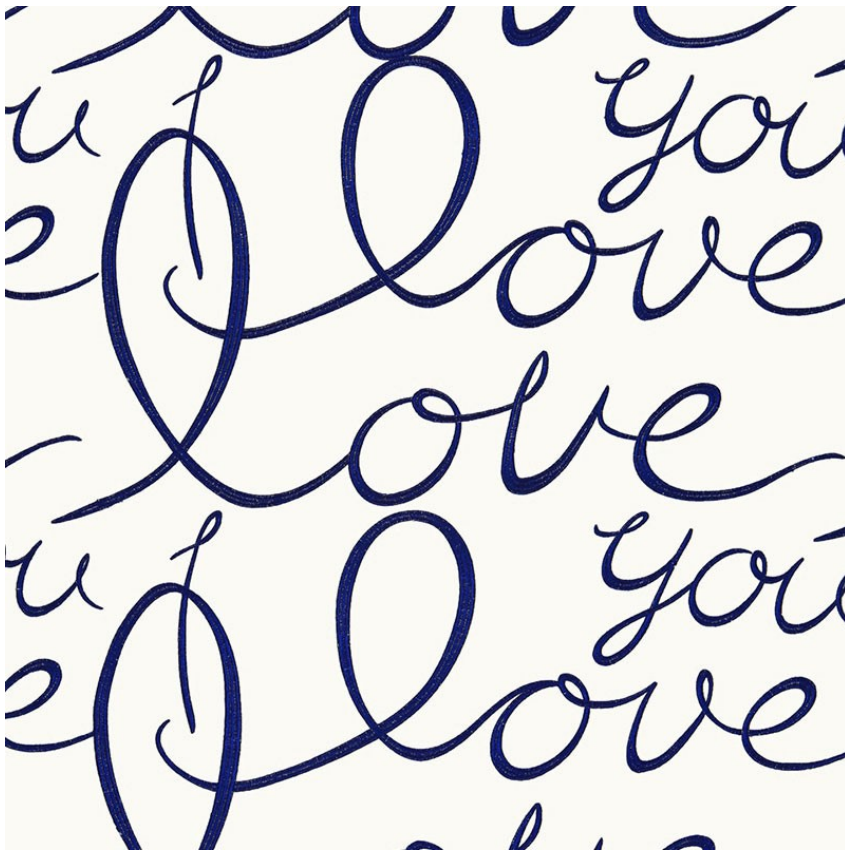 love
you
I love
love
you
I love